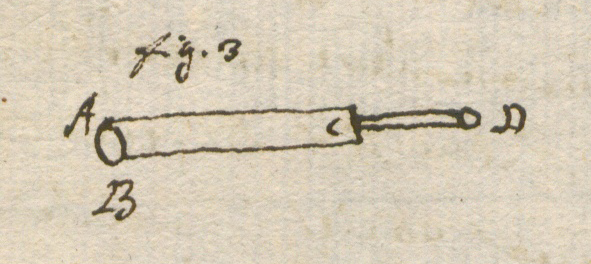 fig. 3
A
C
D
B